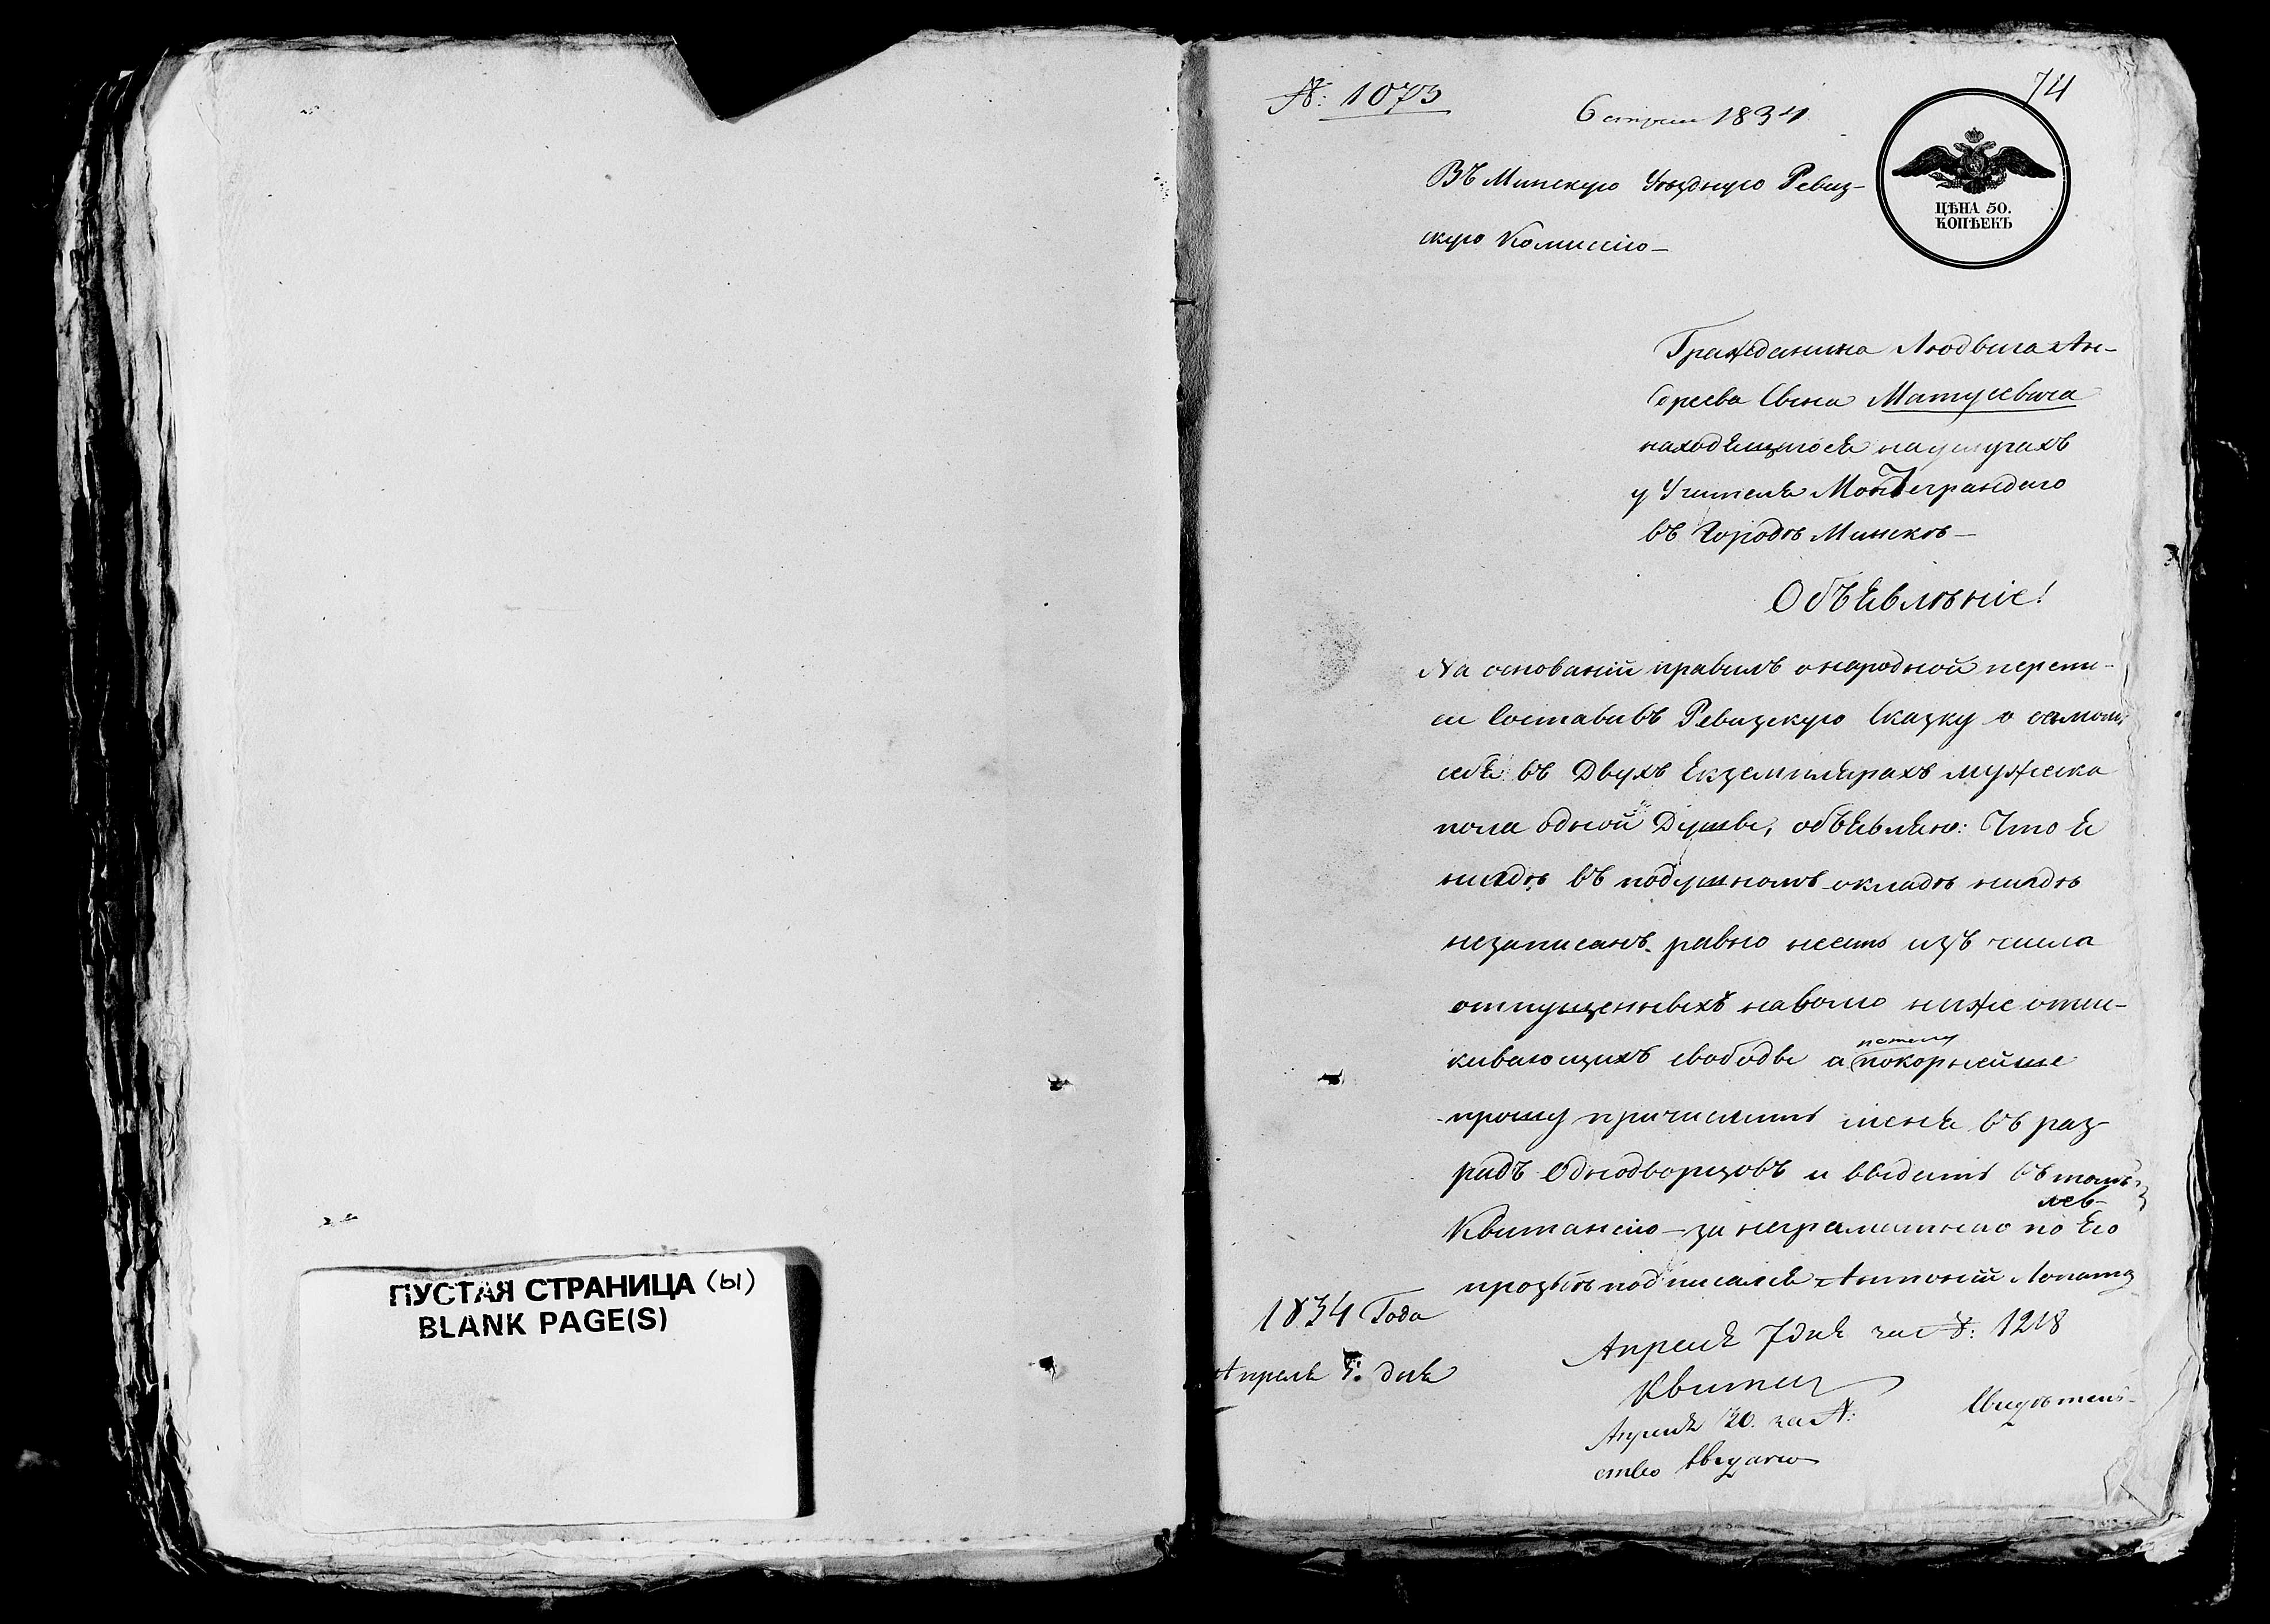 ПУСТАЯ СТРАНИЦА (ы)
BLANK PAGE(S)
№: 1073
74
6 апреля 1834
ЦѢНА 50.
КОПѢЕКЪ
Въ Минскую Уѣздную Ревиз-
скую Комиссію—
Гражданина Людвига Ан-
дреева Сына Матусевича
находящгося на услугахъ
у Учителя Монтеграндого
въ Городѣ Минскѣ—
Объявлѣніе!
На основаній правилъ о народной перепи-
си Составивъ Ревизскую Сказку о самомъ
себѣ въ Двухъ Екземплярахъ мужеска
пола одной Души, объявляю: Что я
нигдѣ въ подушномъ окладѣ нигдѣ
незаписанъ равно несмь изъ числа
отпущенныхъ на волю ниже оты-
скивающихъ свободы а потому покорнейше
прошу причислить меня въ раз-
рядъ Однодворцовъ и выдать въ томъ
Квитанцію — за неграмотнаго по Его
прозьбѣ подписался Антоній Лопата
1834 Года
Апреля 5: дня
Апреля 7 дня за №: 1218
Квитан
Апреля 20. за №: Свидѣтель-
ство Выдано